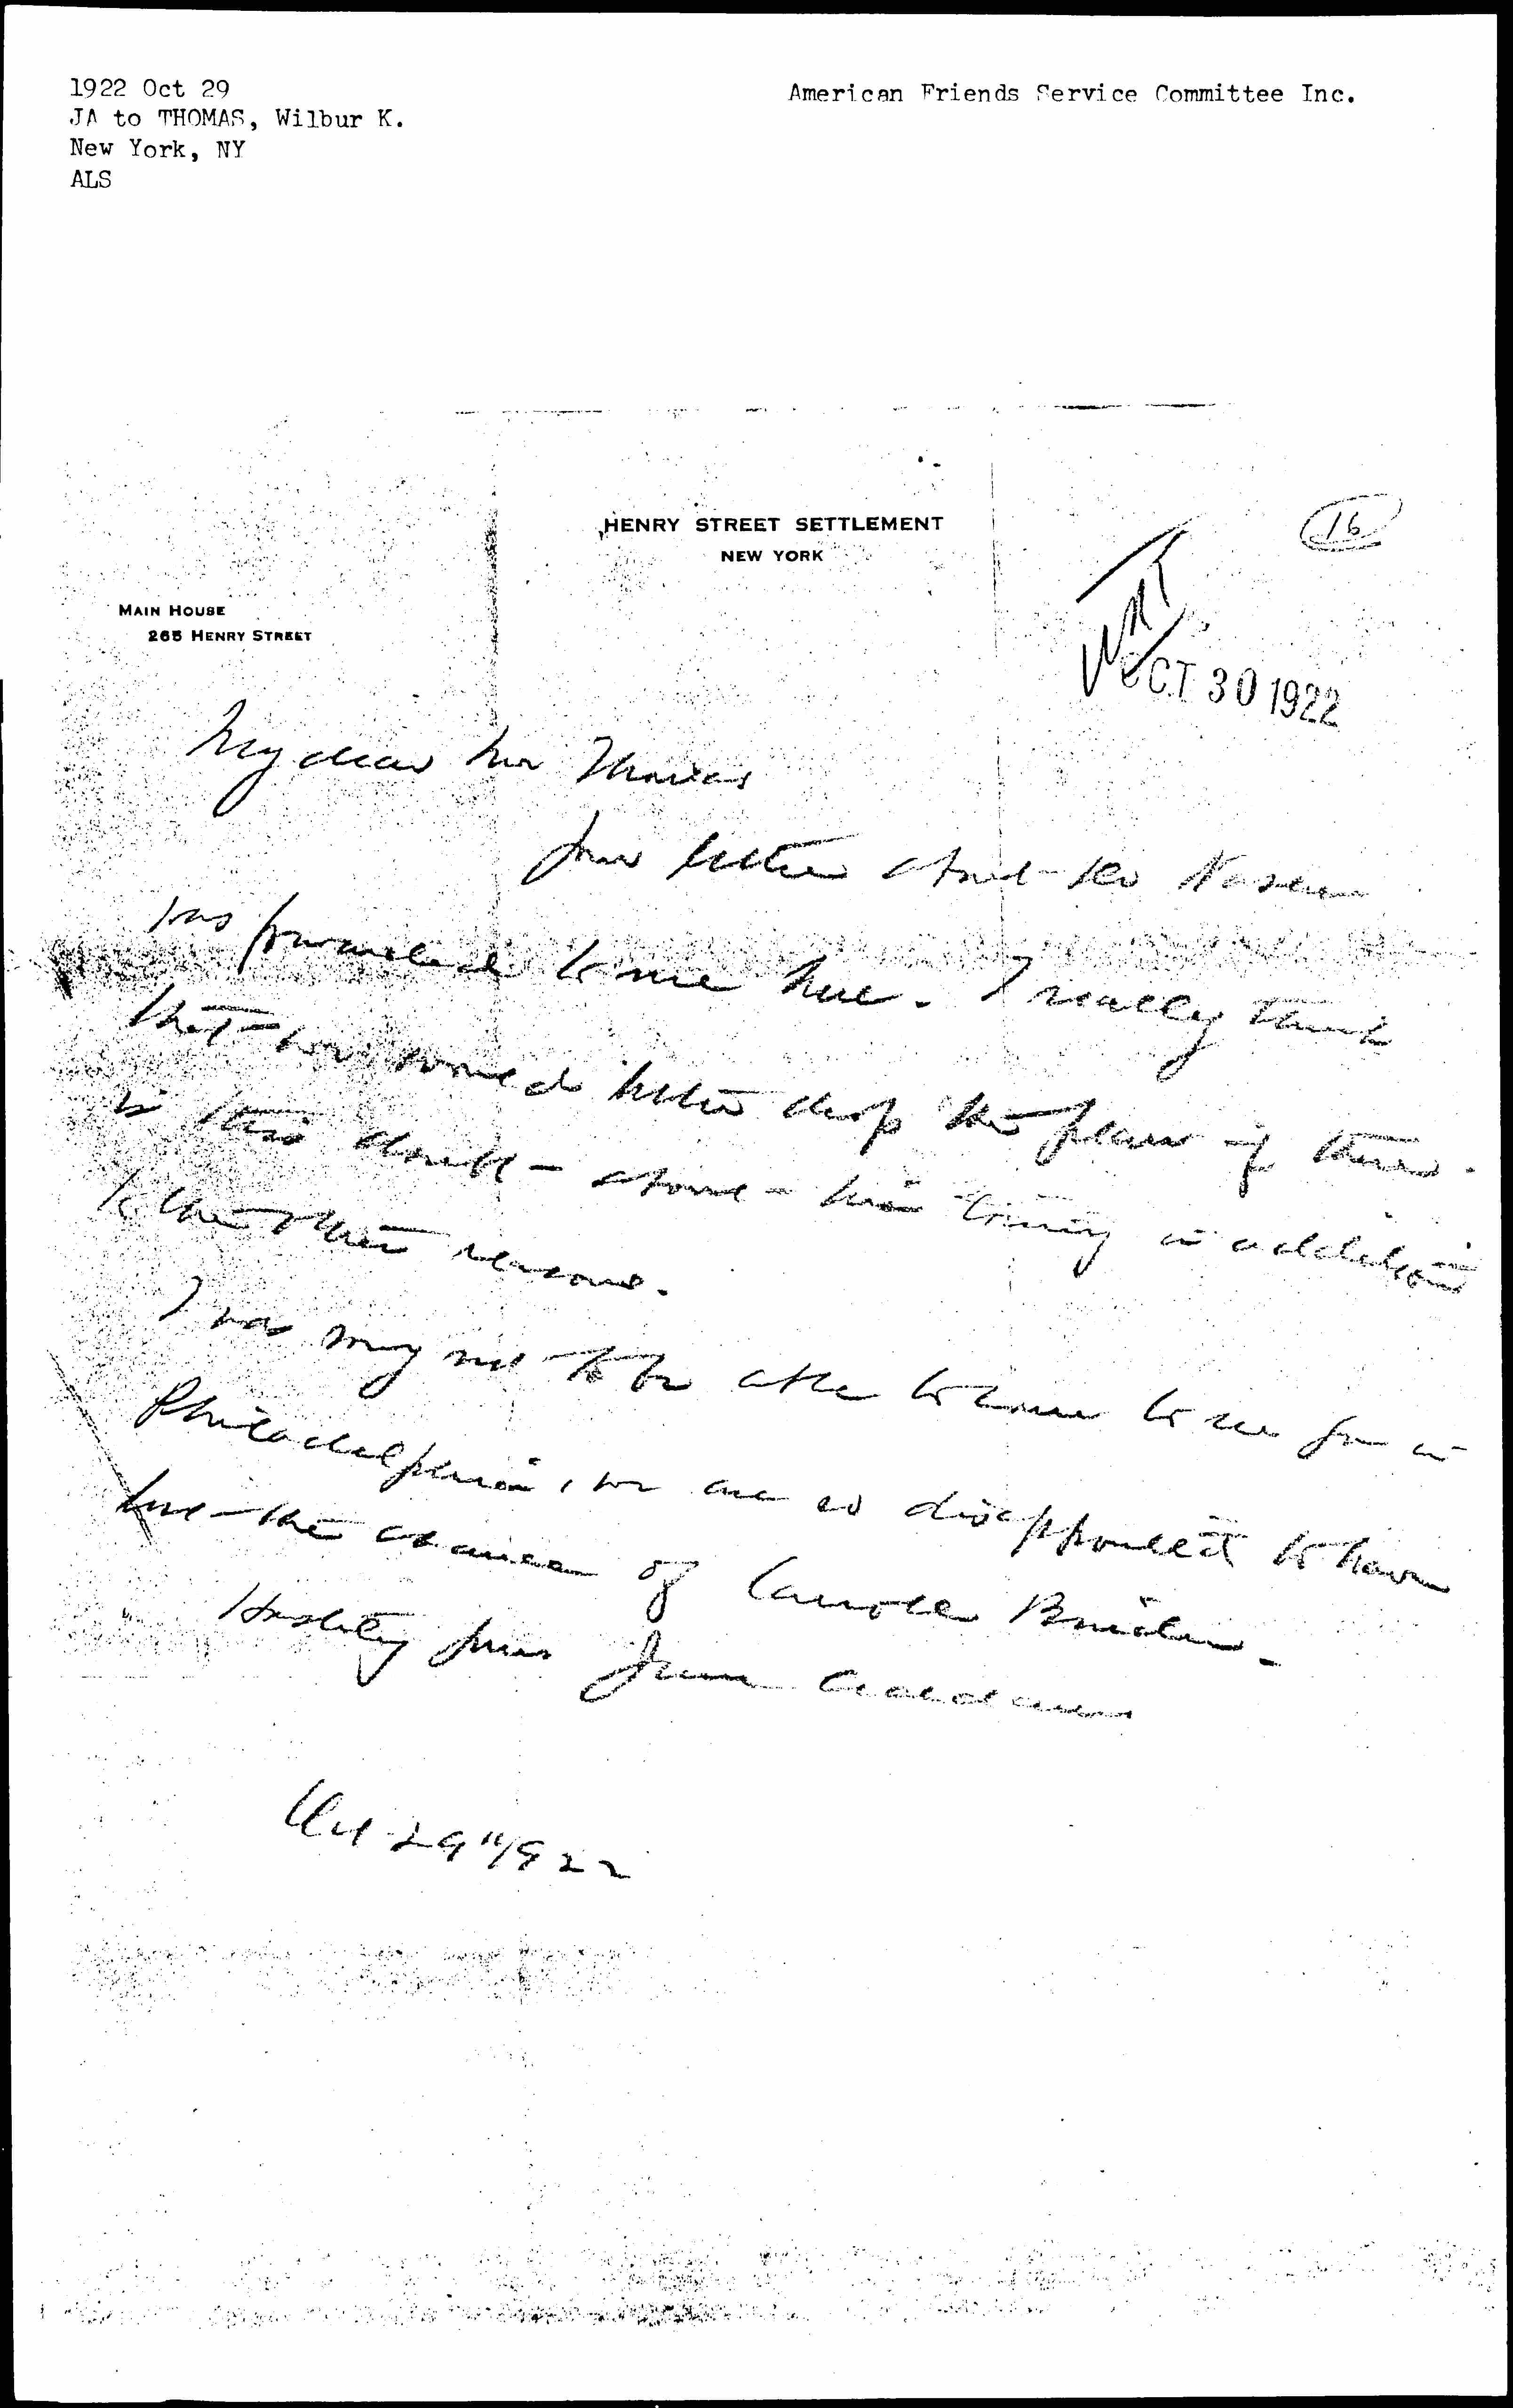 1922 Oct 29
JA to THOMAS, Wilbur K.
New York, NY
ALS
American Friends Service Committee Inc.
HENRY STREET SETTLEMENT
NEW YORK
16
MAIN HOUSE
265 HENRY STREET
WKT
OCT 30 1922
My dear Mr Thomas
Your letter about Dr
was forwarded to me here. I really think
that we would better drop the plan if there
is this doubt about his coming in addition
to the other reasons.
I was sorry not to be able to come to see you in
Philadelphia, we are so disappointed to have
lost the chance of
Hastily yours Jane Addams
Oct 29" 1922